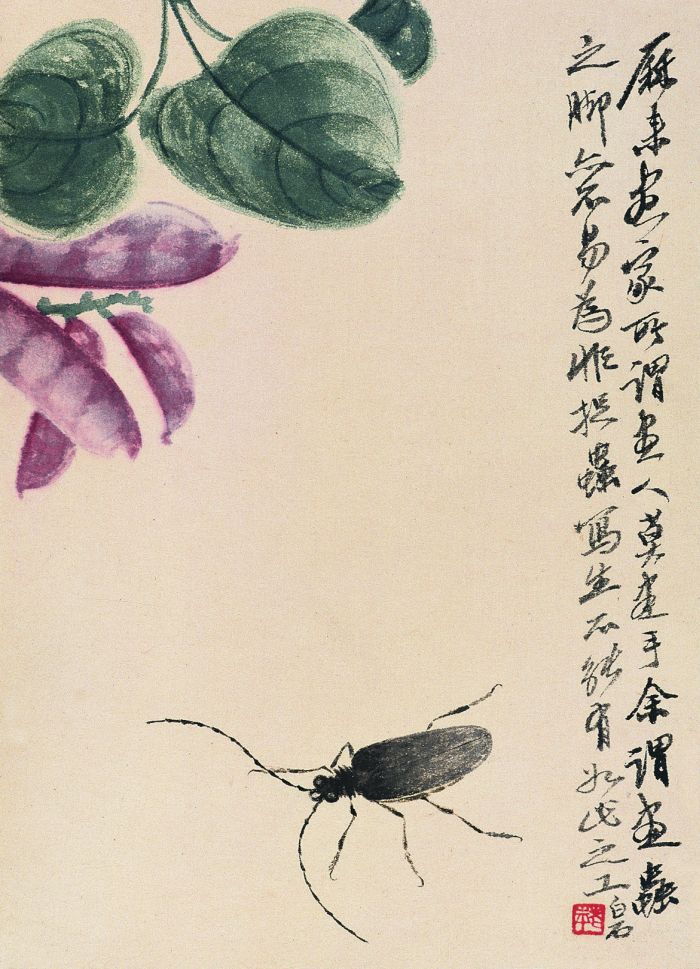 厤来画家所謂画人莫画手余謂画蟲
之脚亦不易為非捉蟲寫生不能有如此之工白石